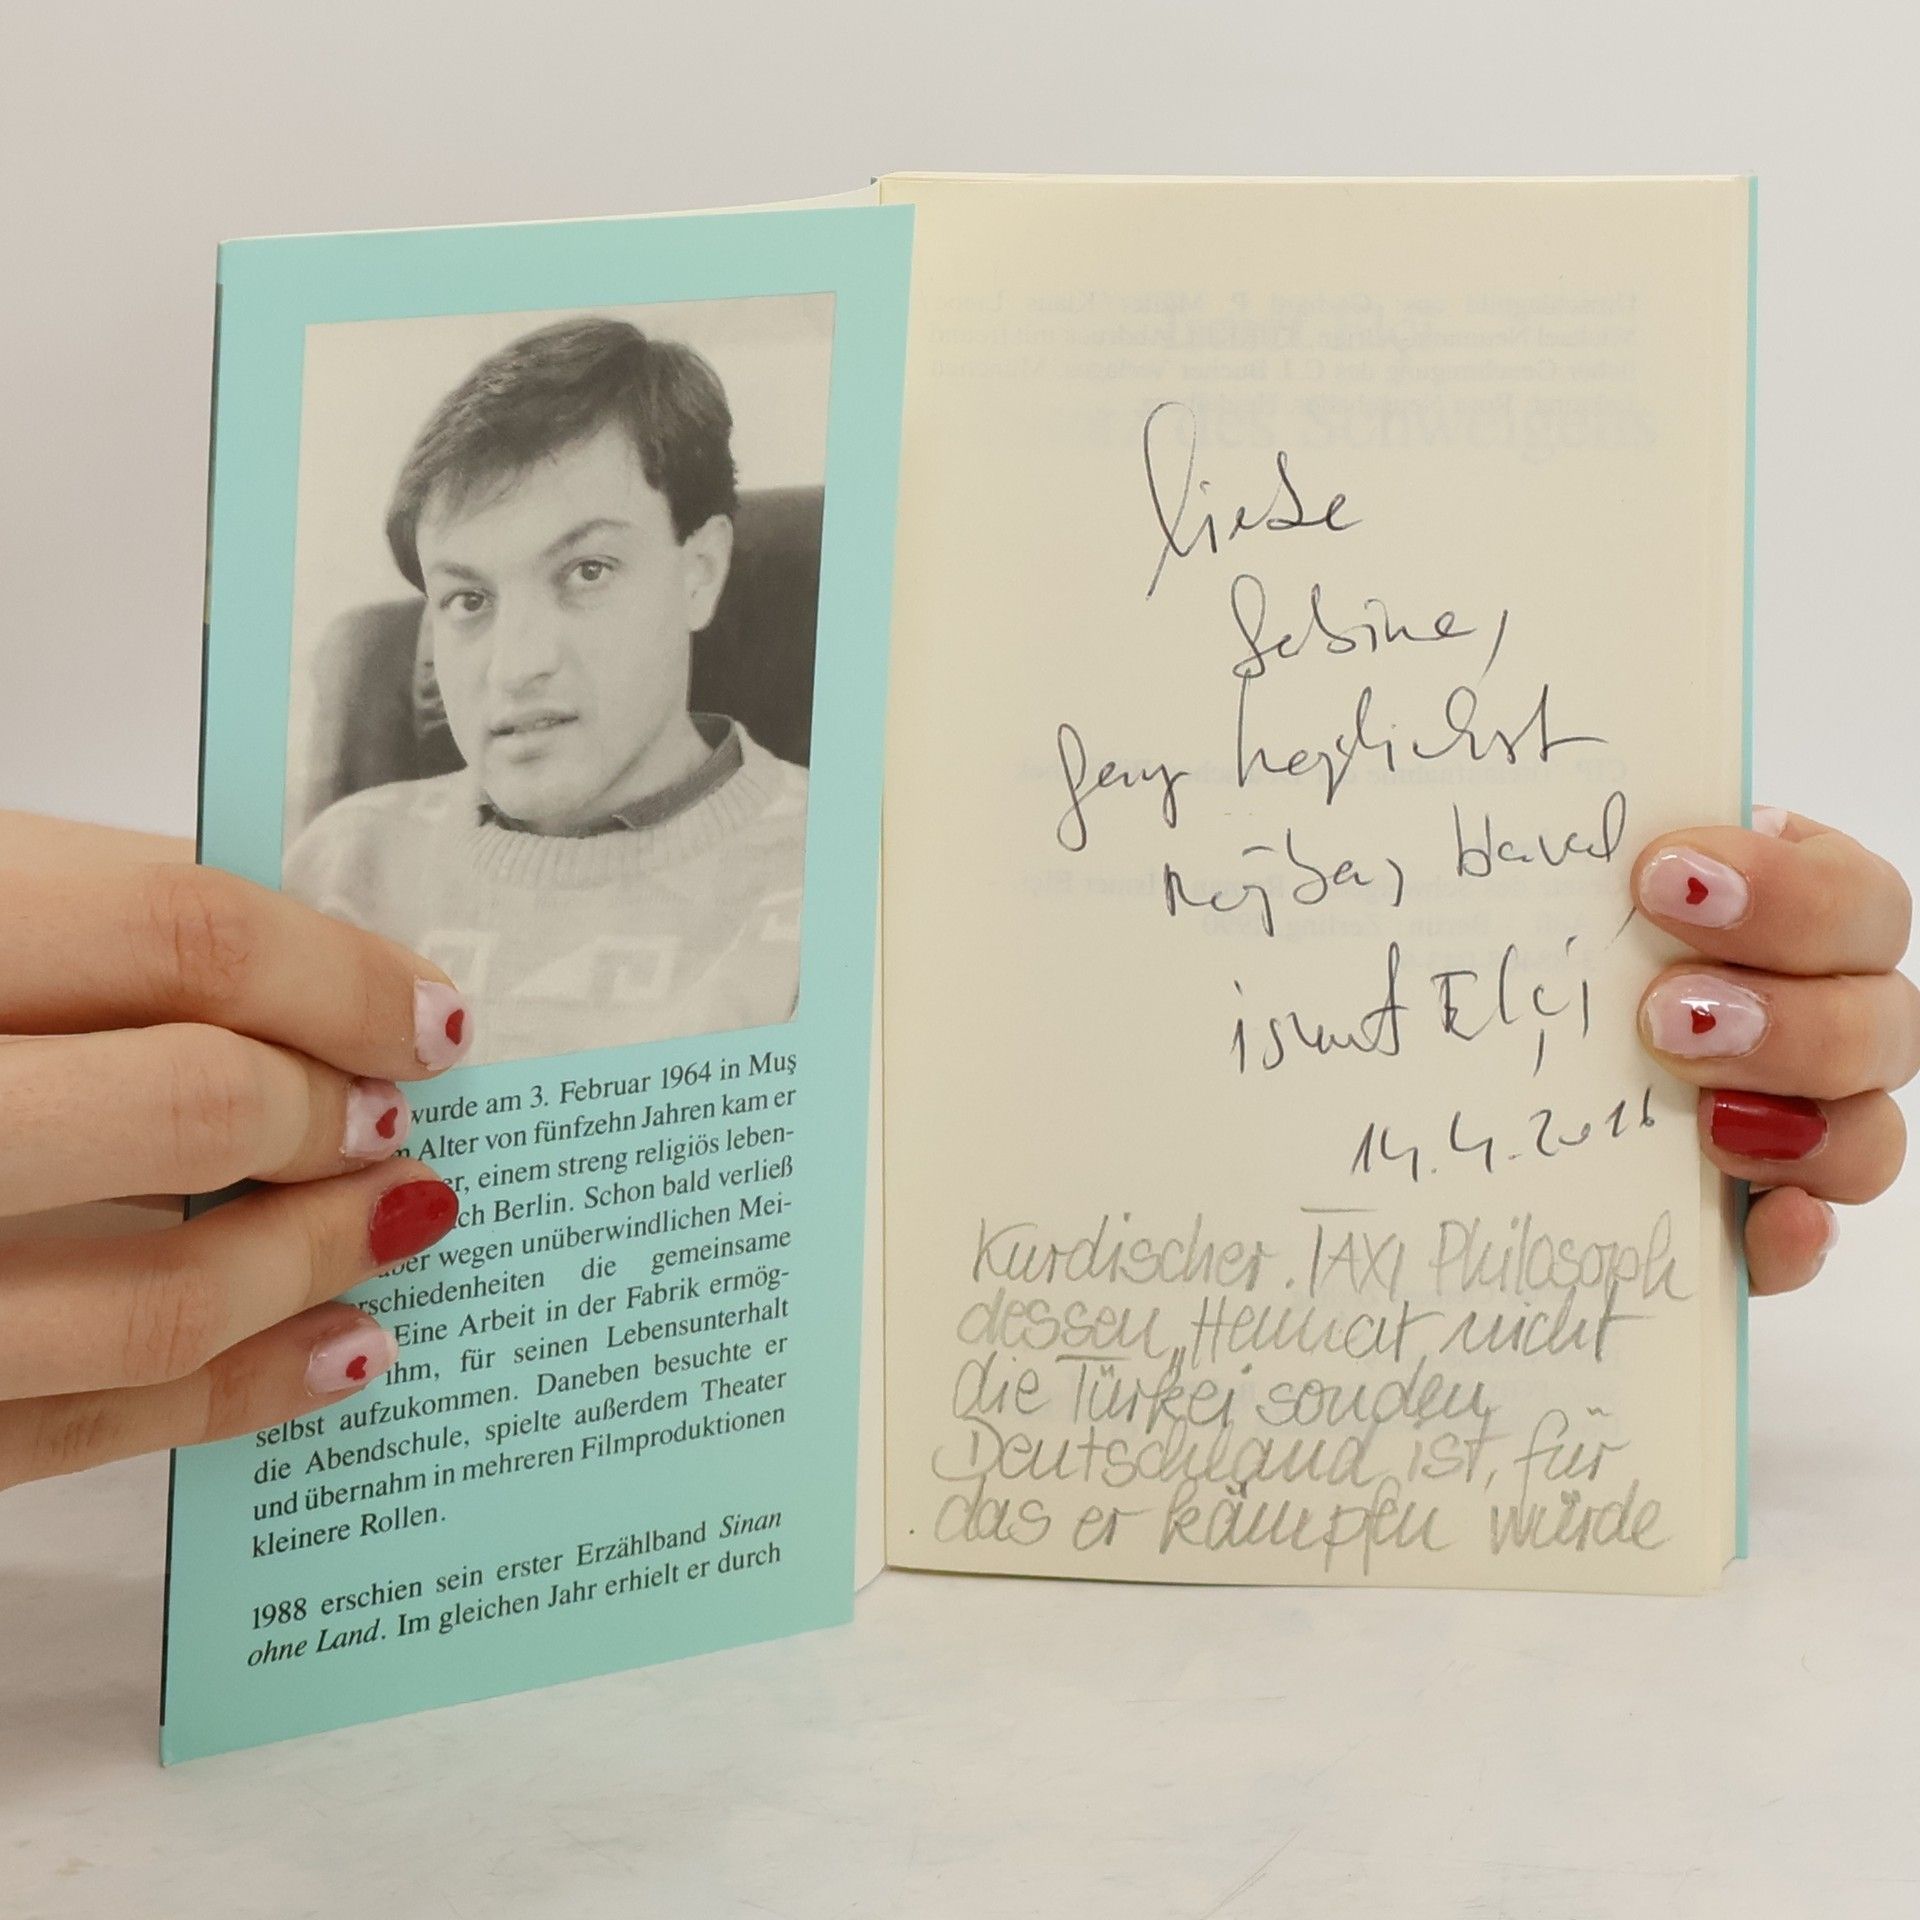 wurde am 3. Februar 1964 in Muş
Alter von fünfzehn Jahren kam er
einem streng religiös leben-
Berlin. Schon bald verließ
wegen unüberwindlichen Mei-
die gemeinsame
Eine Arbeit in der Fabrik ermög-
ihm, für seinen Lebensunterhalt
selbst aufzukommen. Daneben besuchte er
die Abendschule, spielte außerdem Theater
und übernahm in mehreren Filmproduktionen
kleinere Rollen.
1988 erschien sein erster Erzählband Sinan
ohne Land. Im gleichen Jahr erhielt er durch
liebe
Sabine,
ganz herzlichst
Haval,
ismet Elçi
14.4.2016
Kurdischer. TAXI Philosoph
dessen „Heimat nicht
die Türkei sondern
Deutschland ist, für
das er kämpfen würde